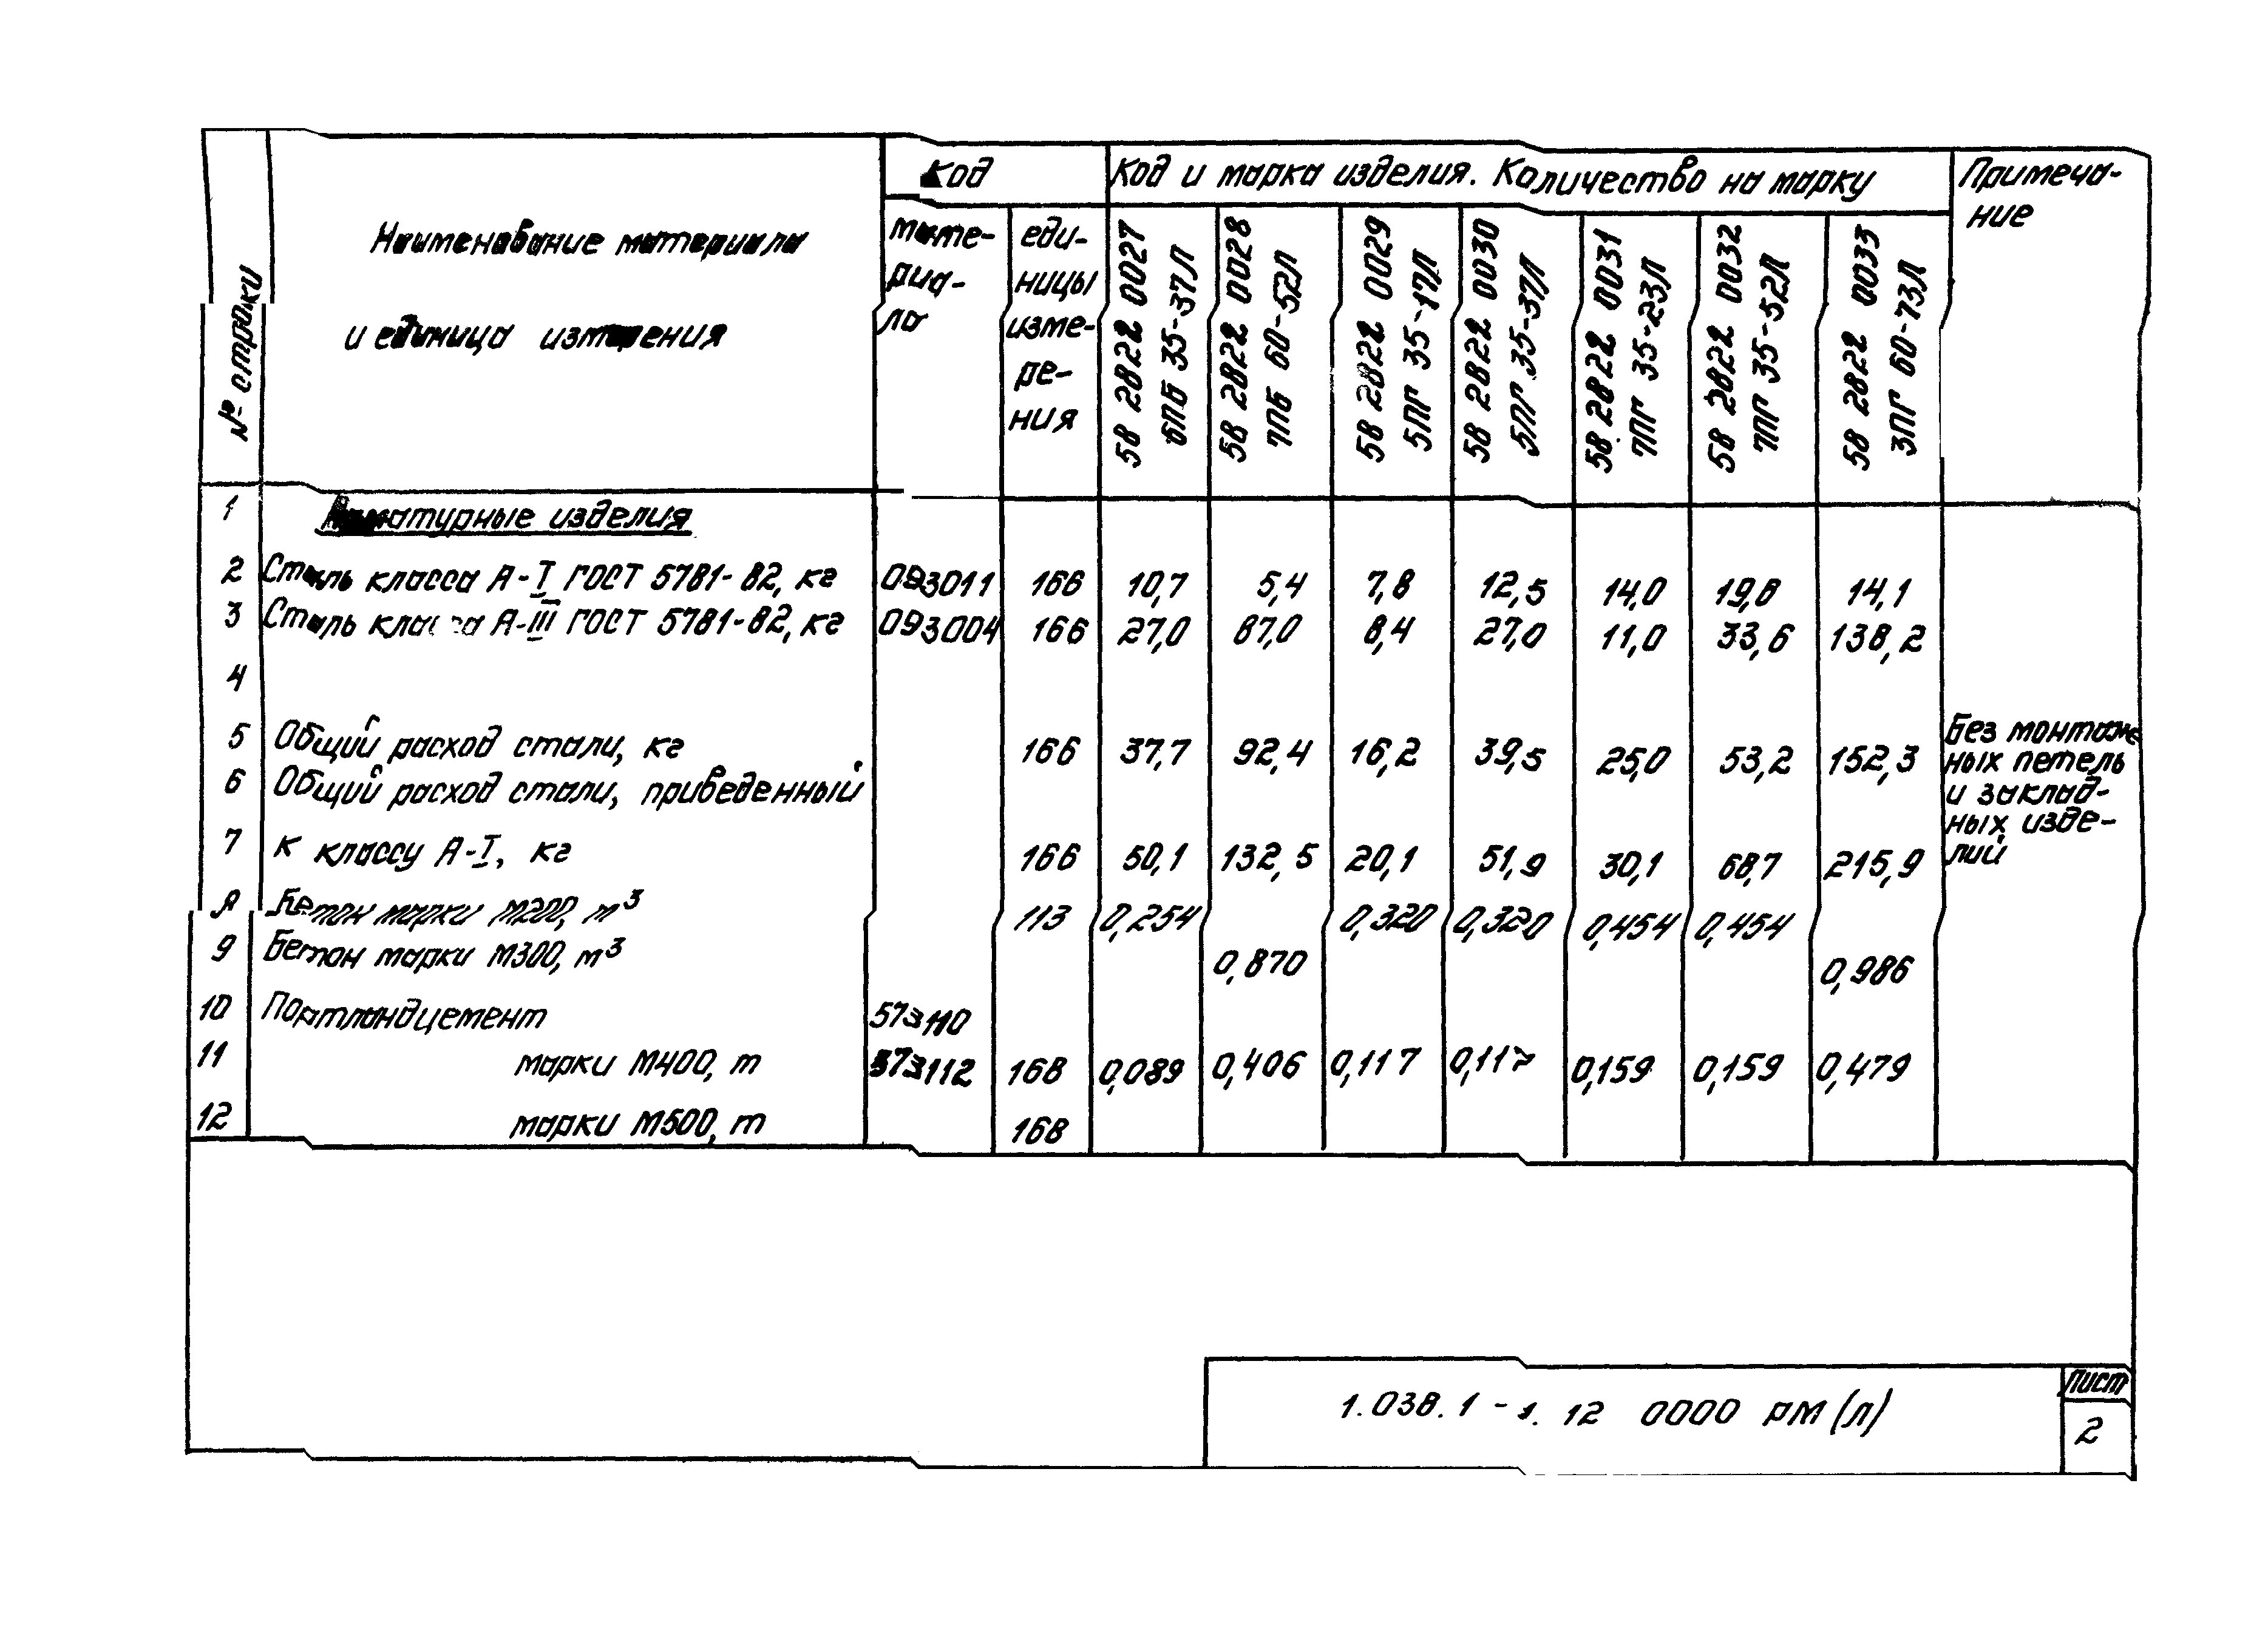 № строки
Наименование материала
и единица измерения
Код
мате-
риа-
ла
еди-
ницы
изме-
ре-
ния
Код и марка изделия. Количество на марку
58 2822 0027
6ПБ 35-37Л
58 2822 0028
7ПБ 60-52Л
58 2822 0029
5ПГ 35-17Л
58 2822 0030
5ПГ 35-37Л
58 2822 0031
7ПГ 35-23Л
58 2822 0032
7ПГ 35-52Л
58 2822 0033
3ПГ 60-73Л
Примеча-
ние
1 Арматурные изделия
2 Сталь класса А-I ГОСТ 5781-82, кг 093011 166 10,7 5,4 7,8 12,5 14,0 19,6 14,1
3 Сталь класса А-III ГОСТ 5781-82, кг 093004 166 27,0 87,0 8,4 27,0 11,0 33,6 138,2
4
5 Общий расход стали, кг 166 37,7 92,4 16,2 39,5 25,0 53,2 152,3
6 Общий расход стали, приведенный
7 к классу А-I, кг 166 50,1 132,5 20,1 51,9 30,1 68,7 215,9
Без монтаж
ных петель
и заклад-
ных изде-
лий
8 Бетон марки М200, м³ 113 0,254 0,320 0,320 0,454 0,454
9 Бетон марки М300, м³ 0,870 0,986
10 Портландцемент 573110
11 марки М400, т 573112 168 0,089 0,406 0,117 0,117 0,159 0,159 0,479
12 марки М500, т 168
1.038.1-1.12 0000 РМ (Л)
Лист
2